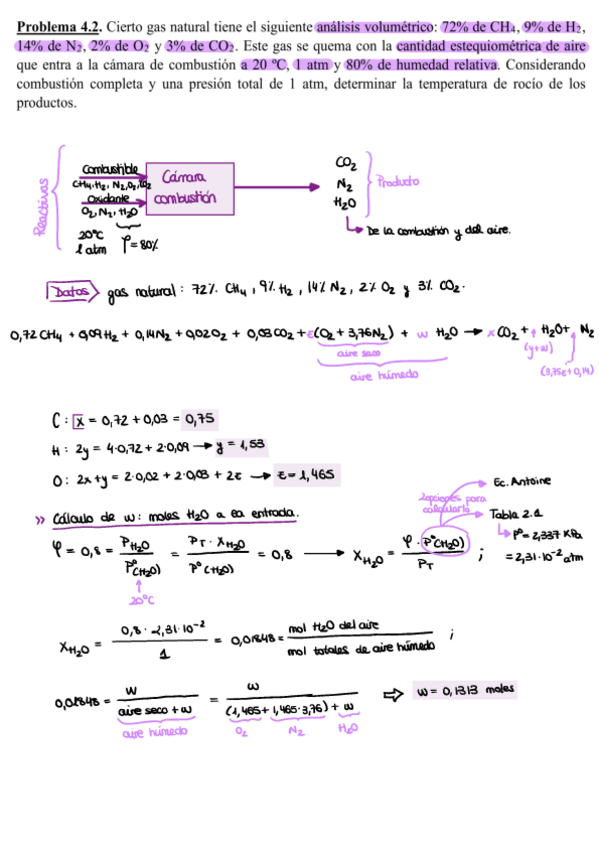 Problema 4.2. Cierto gas natural tiene el siguiente análisis volumétrico: 72% de CH₄, 9% de H₂,
14% de N₂, 2% de O₂ y 3% de CO₂. Este gas se quema con la cantidad estequiométrica de aire
que entra a la cámara de combustión a 20 ºC, 1 atm y 80% de humedad relativa. Considerando
combustión completa y una presión total de 1 atm, determinar la temperatura de rocío de los
productos.
Reactivos
Combustible
CH₄, H₂, N₂, O₂, CO₂
Oxidante
O₂, N₂, H₂O
20ºC
1 atm
φ = 80%
Cámara
combustión
CO₂
N₂
H₂O
Producto
De la combustión y del aire.
Datos gas natural: 72% CH₄, 9% H₂, 14% N₂, 2% O₂ y 3% CO₂.
0,72 CH₄ + 0,09 H₂ + 0,14 N₂ + 0,02 O₂ + 0,03 CO₂ + z(O₂ + 3,76 N₂) + w H₂O → x CO₂ + H₂O + N₂
aire seco
(y+w)
aire húmedo
(3,76z + 0,14)
C: x = 0,72 + 0,03 = 0,75
H: 2y = 4·0,72 + 2·0,09 → y = 1,53
O: 2x + y = 2·0,02 + 2·0,03 + 2z → z = 1,465
2 opciones para
calcularla
Ec. Antoine
Tabla 2.1
P⁰ = 2,337 KPa
= 2,31·10⁻² atm
>> Cálculo de w: moles H₂O a la entrada.
φ = 0,8 = P_H₂O / P⁰(H₂O) = P_T · X_H₂O / P⁰(H₂O) = 0,8 → X_H₂O = φ · P⁰(H₂O) / P_T ;
20ºC
X_H₂O = 0,8 · 2,31·10⁻² / 1 = 0,01848 = mol H₂O del aire / mol totales de aire húmedo ;
0,01848 = w / aire seco + w = w / (1,465 + 1,465·3,76) + w ⇒ w = 0,1313 moles
aire húmedo
O₂ N₂ H₂O